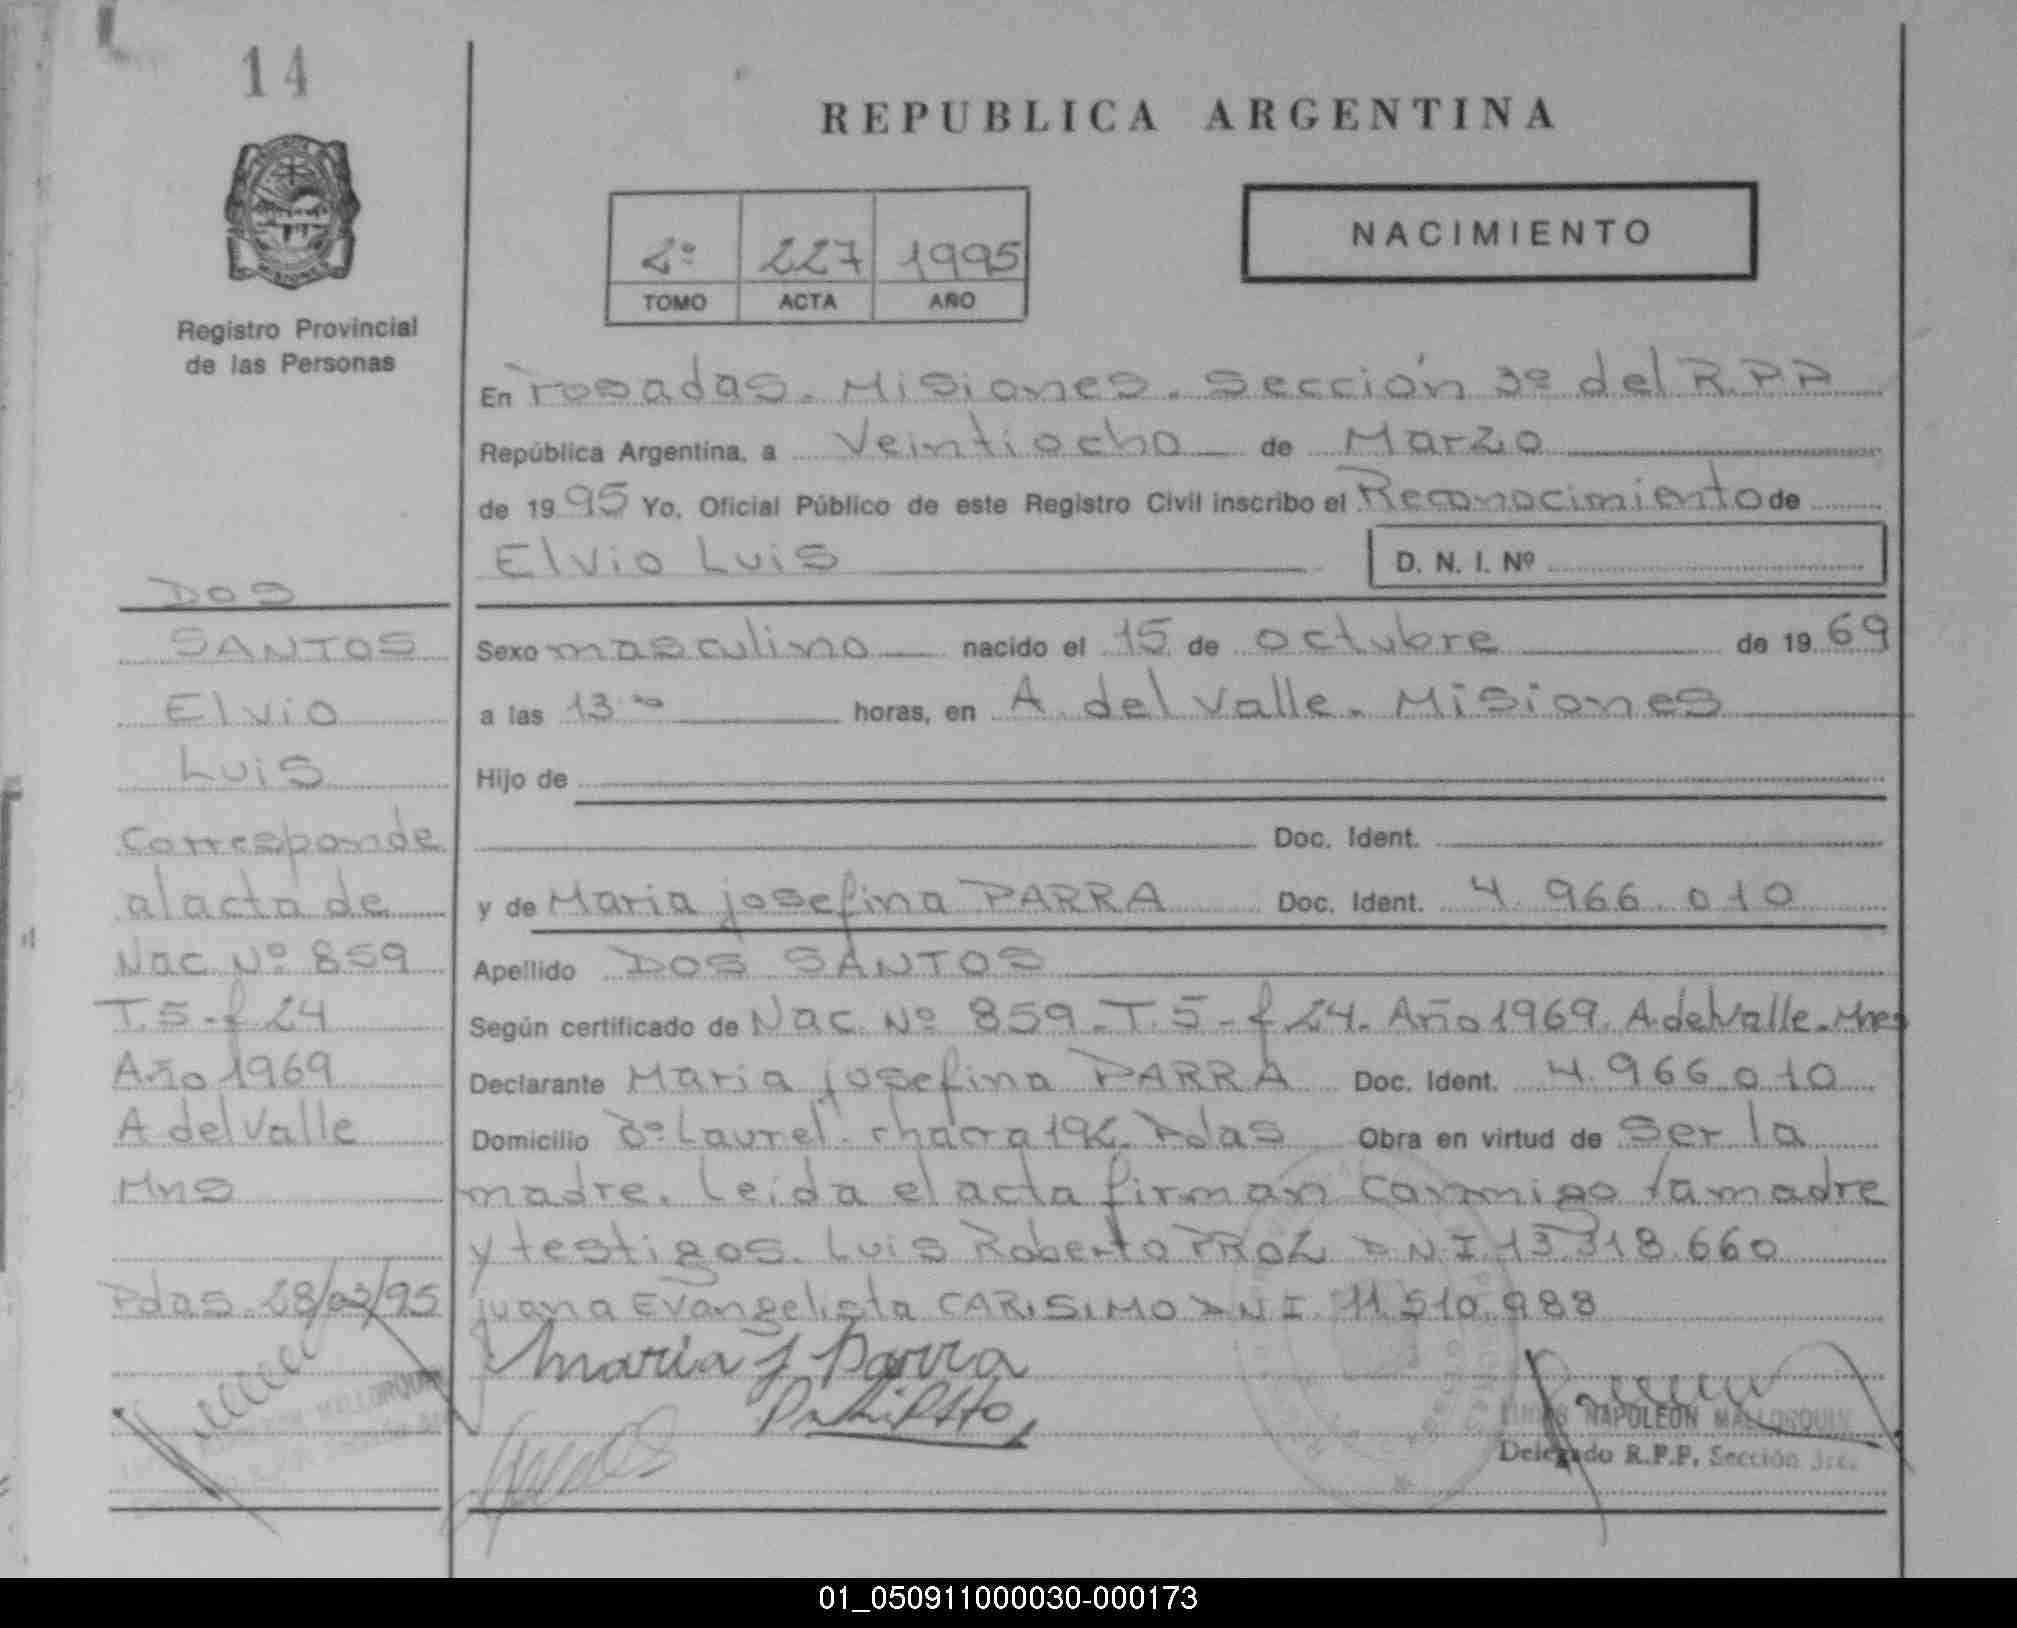 14
REPUBLICA ARGENTINA
NACIMIENTO
2º 227 1995
TOMO ACTA AÑO
Registro Provincial
de las Personas
En Posadas. Misiones. Sección 3º del R.P.P
República Argentina, a Veintiocho de Marzo
de 1995 Yo, Oficial Público de este Registro Civil inscribo el Reconocimiento de
Elvio Luis D. N. I. Nº
Sexo masculino nacido el 15 de octubre de 1969
a las 13 00 horas, en A. del Valle. Misiones
Hijo de
Doc. Ident.
y de Maria josefina PARRA Doc. Ident. 4.966.010
Apellido DOS SANTOS
Según certificado de Nac. Nº 859. T. 5 - f 24. Año 1969. A del Valle. Mnes
Declarante Maria josefina PARRA Doc. Ident. 4.966.010
Domicilio Bº Laurel chacra Pdas Obra en virtud de Ser la
madre. Leida el acta firman conmigo la madre
y testigos. Luis Roberto PROZ DNI 13.318.660
juana Evangelista CARISIMO DNI 11.510.988
Maria J Parra
NAPOLEON MALLORQUIN
Delegado R.P.P. Sección 3ra.
DOS
SANTOS
Elvio
Luis
Corresponde
al acta de
Nac. Nº 859
T. 5 - f 24
Año 1969
A del Valle
Mns
Pdas 28/03/95
MALLORQUIN
01_050911000030-000173